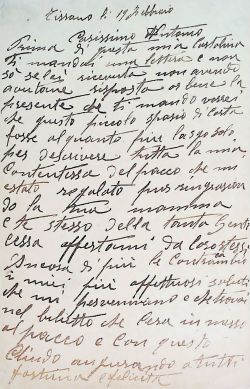 Tissano li 19 Febbraio
Carissimo Antonio
Prima di questa mia Cartolina
ti mandai una lettera e non
só se lai ricevuta non avendo
avutone risposta or bene la
presente che ti mando vorrei
che questo piccolo spasio di Carta
fosse alquanto piu largo solo
per descriverе tutta la mia
Contentessa del pacco che mi é
stato regalato pur ringrazian
do la tua mamma
e te stesso della tanta Genti
lessa offertami da loro stessi
Ancora di piú la Contracambio
i miei piú affettuosi saluti
che mi pervenivano e che trovai
nel biglietto che Cera in messo
al pacco e Con questo
Chiudo augurando a tutti
fortuna e felicita